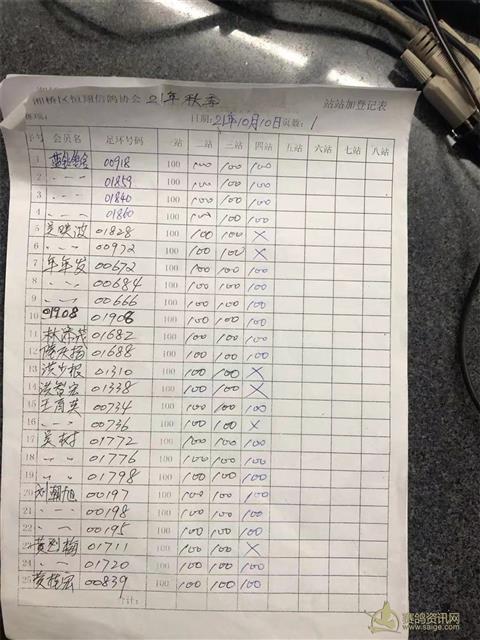 湘桥区恒翔信鸽协会 21年秋季 站站加登记表
日期:21年10月10日页数:1
序号 会员名 足环号码 一站 二站 三站 四站 五站 六站 七站 八站
1 00918 100 100 100 100
2 01859 100 100 100 100
3 01840 100 100 100 100
4 01860 100 100 100 100
5 吴映波 01828 100 100 100 ×
6 00972 100 100 100 ×
7 年年发 00672 100 100 100 100
8 00684 100 100 100 100
9 00666 100 100 100 100
10 01908 01908 100 100 100 100
11 林 01682 100 100 100 100
12 陈庆扬 01688 100 100 100 100
13 洪少根 01310 100 100 100 ×
14 洪 宏 01338 100 100 100 ×
15 王 英 00734 100 100 100 100
16 00736 100 100 100 ×
17 吴 01772 100 100 100 100
18 01776 100 100 100 100
19 01798 100 100 100 100
20 刘潮旭 00197 100 100 100 100
21 00198 100 100 100 100
22 00195 100 100 100 100
23 黄 梅 01711 100 100 100 ×
24 01720 100 100 100 100
25 黄 宏 00839 100 100 100 100
合计:
赛鸽资讯网
www.saige.com